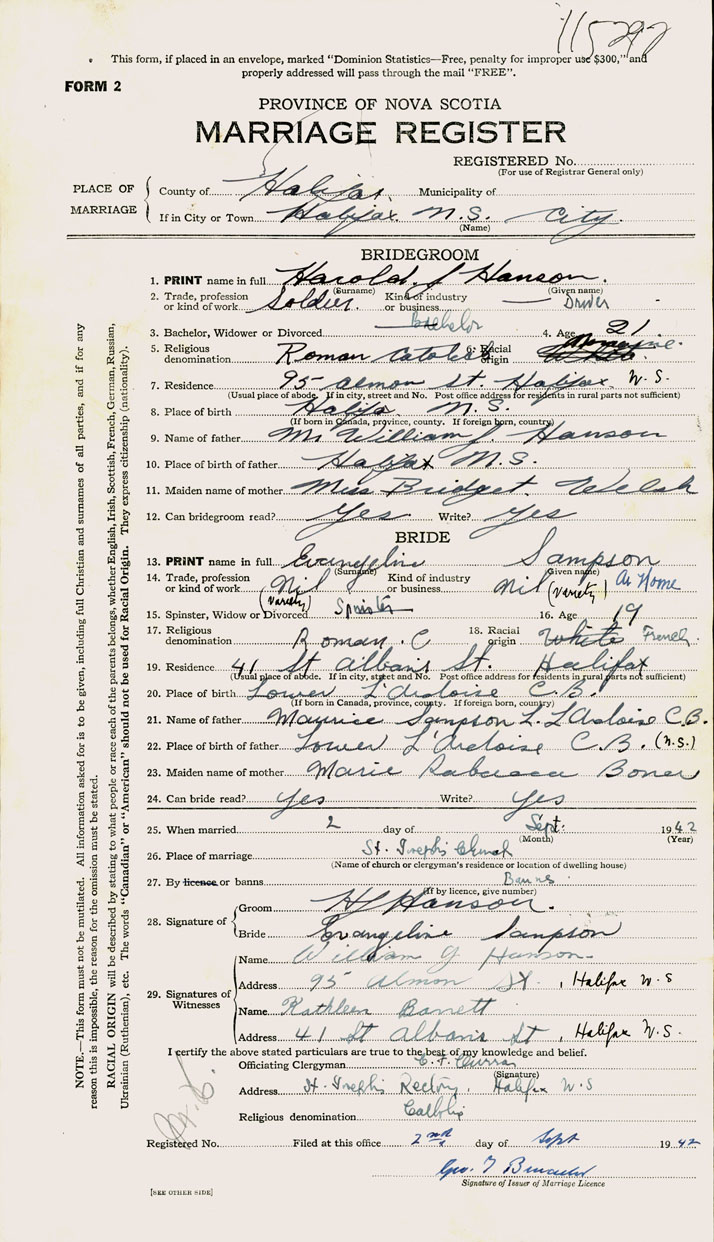 115292
This form, if placed in an envelope, marked "Dominion Statistics—Free, penalty for improper use $300," and
properly addressed will pass through the mail "FREE".
FORM 2
PROVINCE OF NOVA SCOTIA
MARRIAGE REGISTER
REGISTERED No.
(For use of Registrar General only)
PLACE OF MARRIAGE
County of Halifax Municipality of
If in City or Town Halifax N.S. City
(Name)
BRIDEGROOM
1. PRINT name in full Harold J Hanson.
(Surname) (Given name)
2. Trade, profession or kind of work Soldier. Kind of industry or business — Driver
3. Bachelor, Widower or Divorced Bachelor 4. Age 21
5. Religious denomination Roman Catolic 6. Racial origin
7. Residence 95 Almon St. Halifax N.S.
(Usual place of abode. If in city, street and No. Post office address for residents in rural parts not sufficient)
8. Place of birth Halifax N.S.
(If born in Canada, province, county. If foreign born, country)
9. Name of father Mr William J. Hanson
10. Place of birth of father Halifax N.S.
11. Maiden name of mother Miss Bridget. Welsh
12. Can bridegroom read? Yes Write? Yes
BRIDE
13. PRINT name in full Evangeline Sampson
(Surname) (Given name)
14. Trade, profession or kind of work Nil Kind of industry or business Nil At Home
(Variety) (Variety)
15. Spinster, Widow or Divorced Spinster 16. Age 19
17. Religious denomination Roman. C 18. Racial origin White French.
19. Residence 41 St Albans St. Halifax
(Usual place of abode. If in city, street and No. Post office address for residents in rural parts not sufficient)
20. Place of birth Lower L'Ardoise C.B.
(If born in Canada, province, county. If foreign born, country)
21. Name of father Maurice Sampson L. L'Ardoise C.B.
22. Place of birth of father Lower L'Ardoise C.B. (N.S.)
23. Maiden name of mother Marie
24. Can bride read? Yes Write? Yes
25. When married 2 day of Sept. 1942
(Month) (Year)
26. Place of marriage St. Joseph's Church
(Name of church or clergyman's residence or location of dwelling house)
27. By licence or banns Banns
(If by licence, give number)
28. Signature of
Groom H J Hanson.
Bride Evangeline Sampson
29. Signatures of Witnesses
Name William J Hanson.
Address 95 Almon St., Halifax N.S
Name Kathleen Barrett
Address 41 St Albans St, Halifax N.S.
I certify the above stated particulars are true to the best of my knowledge and belief.
Officiating Clergyman C. F. Curran
(Signature)
Address St. Josephs Rectory. Halifax N.S
Religious denomination Catholic
Registered No. Filed at this office 2nd day of Sept 1942
Geo. T
Signature of Issuer of Marriage Licence
[SEE OTHER SIDE]
NOTE.—This form must not be mutilated. All information asked for is to be given, including full Christian and surnames of all parties, and if for any
reason this is impossible, the reason for the omission must be stated.
RACIAL ORIGIN will be described by stating to what people or race each of the parents belongs, whether English, Irish, Scottish, French, German, Russian,
Ukrainian (Ruthenian), etc. The words "Canadian" or "American" should not be used for Racial Origin. They express citizenship (nationality).